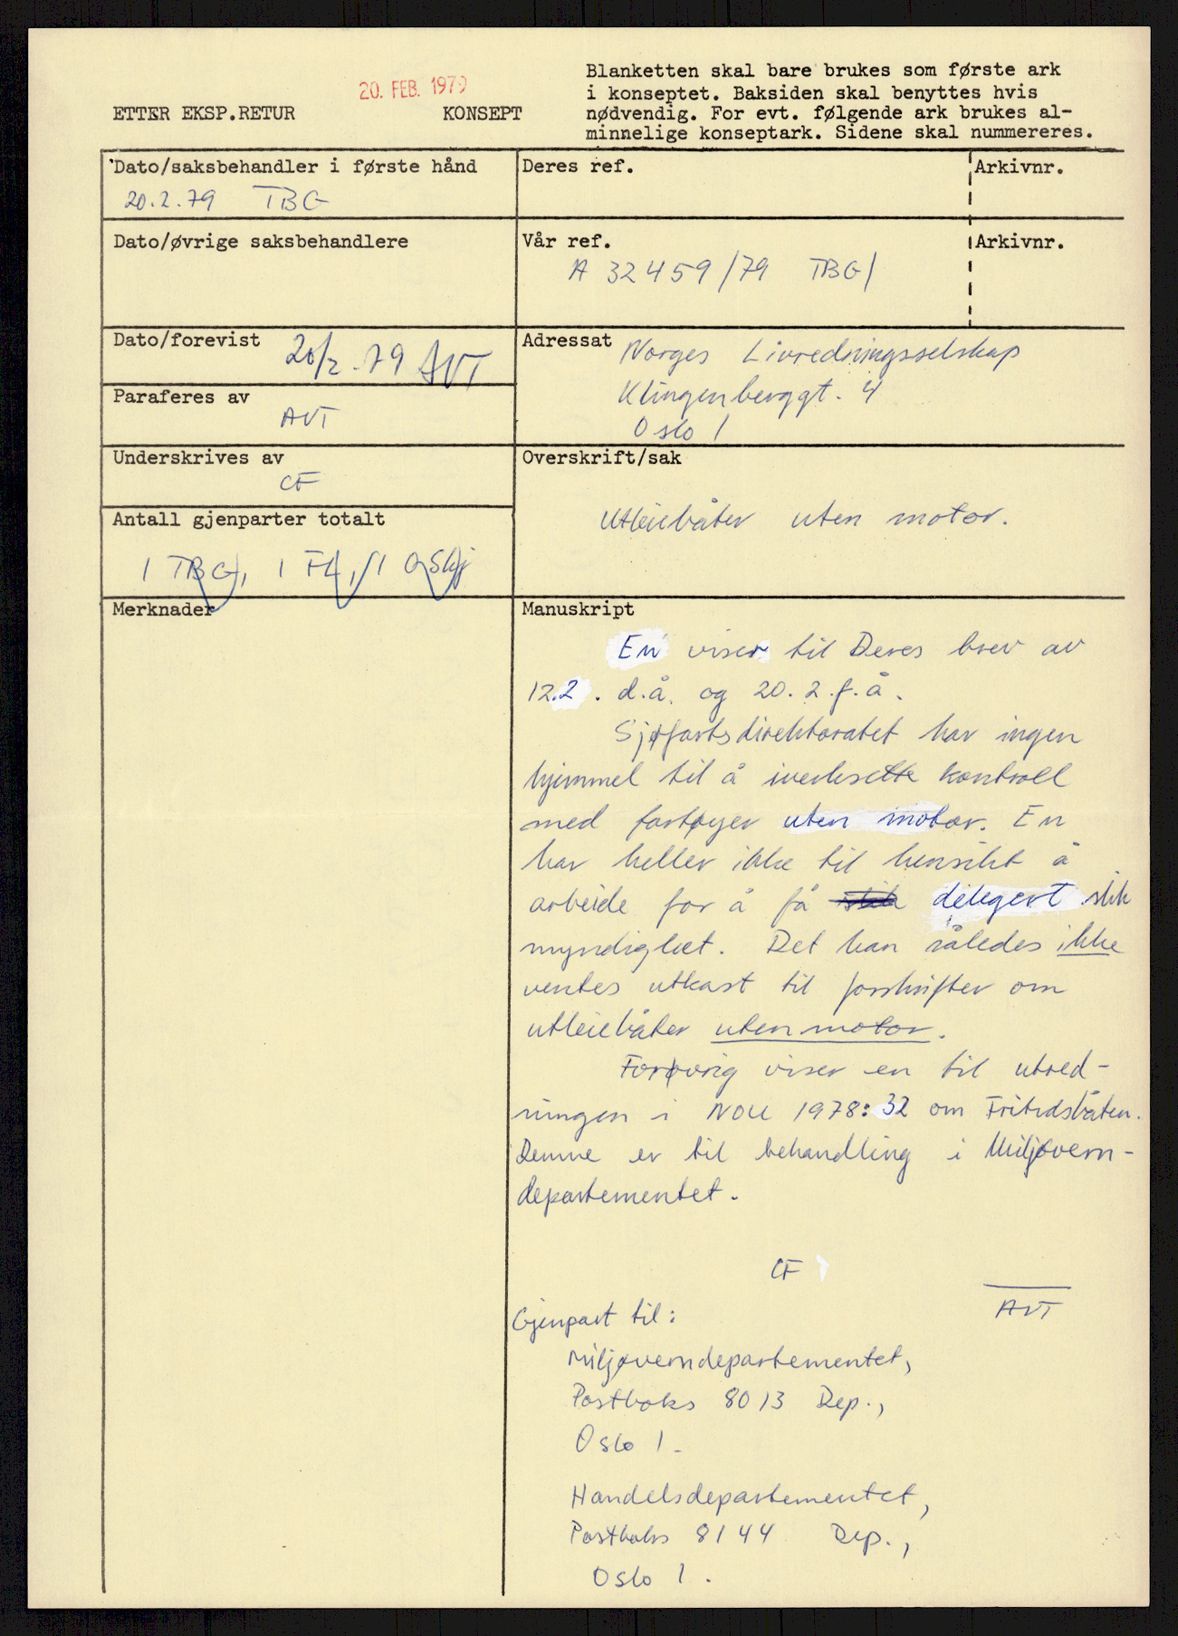 Blanketten skal bare brukes som første ark
i konseptet. Baksiden skal benyttes hvis
nødvendig. For evt. følgende ark brukes al-
minnelige konseptark. Sidene skal nummereres.
20. FEB. 1979
ETTER EKSP.RETUR KONSEPT
Dato/saksbehandler i første hånd
20.2.79 TBG
Deres ref.
Arkivnr.
Dato/øvrige saksbehandlere
Vår ref.
A 32459/79 TBG/
Arkivnr.
Dato/forevist 20/2-79 AVT
Paraferes av
AVT
Adressat Norges Livredningsselskap
Klingenberggt. 4
Oslo 1
Underskrives av
CF
Antall gjenparter totalt
1 TBG, 1 FL, 1 OSkj
Overskrift/sak
Utleiebåter uten motor.
Merknader
Manuskript
En viser til Deres brev av
12.2. d.å. og 20.2.f.å.
Sjøfartsdirektoratet har ingen
hjemmel til å iverksette kontroll
med fartøyer uten motor. En
har heller ikke til hensikt å
arbeide for å få slik delegert slik
myndighet. Det kan således ikke
ventes utkast til forskrifter om
utleiebåter uten motor.
Forøvrig viser en til utred-
ningen i NOU 1978:32 om Fritidsbåten.
Denne er til behandling i Miljøvern-
departementet.
CF
AVT
Gjenpart til:
Miljøverndepartementet,
Postboks 8013 Dep.,
Oslo 1.
Handelsdepartementet,
Postboks 8144 Dep.,
Oslo 1.